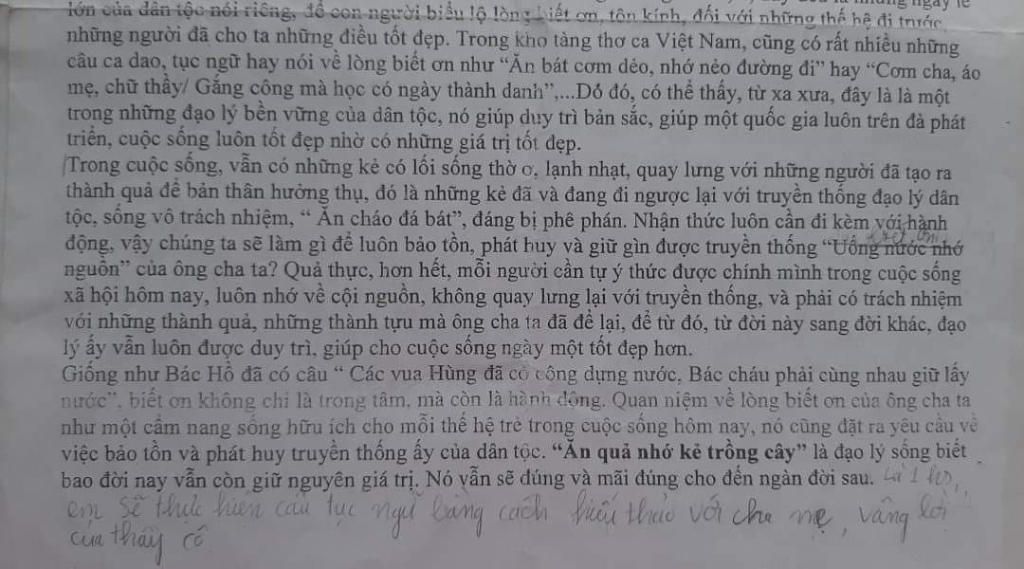 lớn của dân tộc nói riêng, để con người biểu lộ lòng biết ơn, tôn kính, đối với những thế hệ đi trước,
những người đã cho ta những điều tốt đẹp. Trong kho tàng thơ ca Việt Nam, cũng có rất nhiều những
câu ca dao, tục ngữ hay nói về lòng biết ơn như “Ăn bát cơm dẻo, nhớ nẻo đường đi” hay “Cơm cha, áo
mẹ, chữ thầy/ Gắng công mà học có ngày thành danh”,...Dó đó, có thể thấy, từ xa xưa, đây là là một
trong những đạo lý bền vững của dân tộc, nó giúp duy trì bản sắc, giúp một quốc gia luôn trên đà phát
triển, cuộc sống luôn tốt đẹp nhờ có những giá trị tốt đẹp.
Trong cuộc sống, vẫn có những kẻ có lối sống thờ ơ, lạnh nhạt, quay lưng với những người đã tạo ra
thành quả để bản thân hưởng thụ, đó là những kẻ đã và đang đi ngược lại với truyền thống đạo lý dân
tộc, sống vô trách nhiệm, “ Ăn cháo đá bát”, đáng bị phê phán. Nhận thức luôn cần đi kèm với hành
động, vậy chúng ta sẽ làm gì để luôn bảo tồn, phát huy và giữ gìn được truyền thống “Uống nước nhớ
nguồn” của ông cha ta? Quả thực, hơn hết, mỗi người cần tự ý thức được chính mình trong cuộc sống
xã hội hôm nay, luôn nhớ về cội nguồn, không quay lưng lại với truyền thống, và phải có trách nhiệm
với những thành quả, những thành tựu mà ông cha ta đã để lại, để từ đó, từ đời này sang đời khác, đạo
lý ấy vẫn luôn được duy trì, giúp cho cuộc sống ngày một tốt đẹp hơn.
Giống như Bác Hồ đã có câu “ Các vua Hùng đã có công dựng nước, Bác cháu phải cùng nhau giữ lấy
nước”, biết ơn không chỉ là trong tâm, mà còn là hành động. Quan niệm về lòng biết ơn của ông cha ta
như một cẩm nang sống hữu ích cho mỗi thế hệ trẻ trong cuộc sống hôm nay, nó cũng đặt ra yêu cầu về
việc bảo tồn và phát huy truyền thống ấy của dân tộc. “Ăn quả nhớ kẻ trồng cây” là đạo lý sống biết
bao đời nay vẫn còn giữ nguyên giá trị. Nó vẫn sẽ đúng và mãi đúng cho đến ngàn đời sau. Là 1 hs,
em sẽ thực hiện câu tục ngữ bằng cách hiếu thảo với cha mẹ, vâng lời
của thầy cô